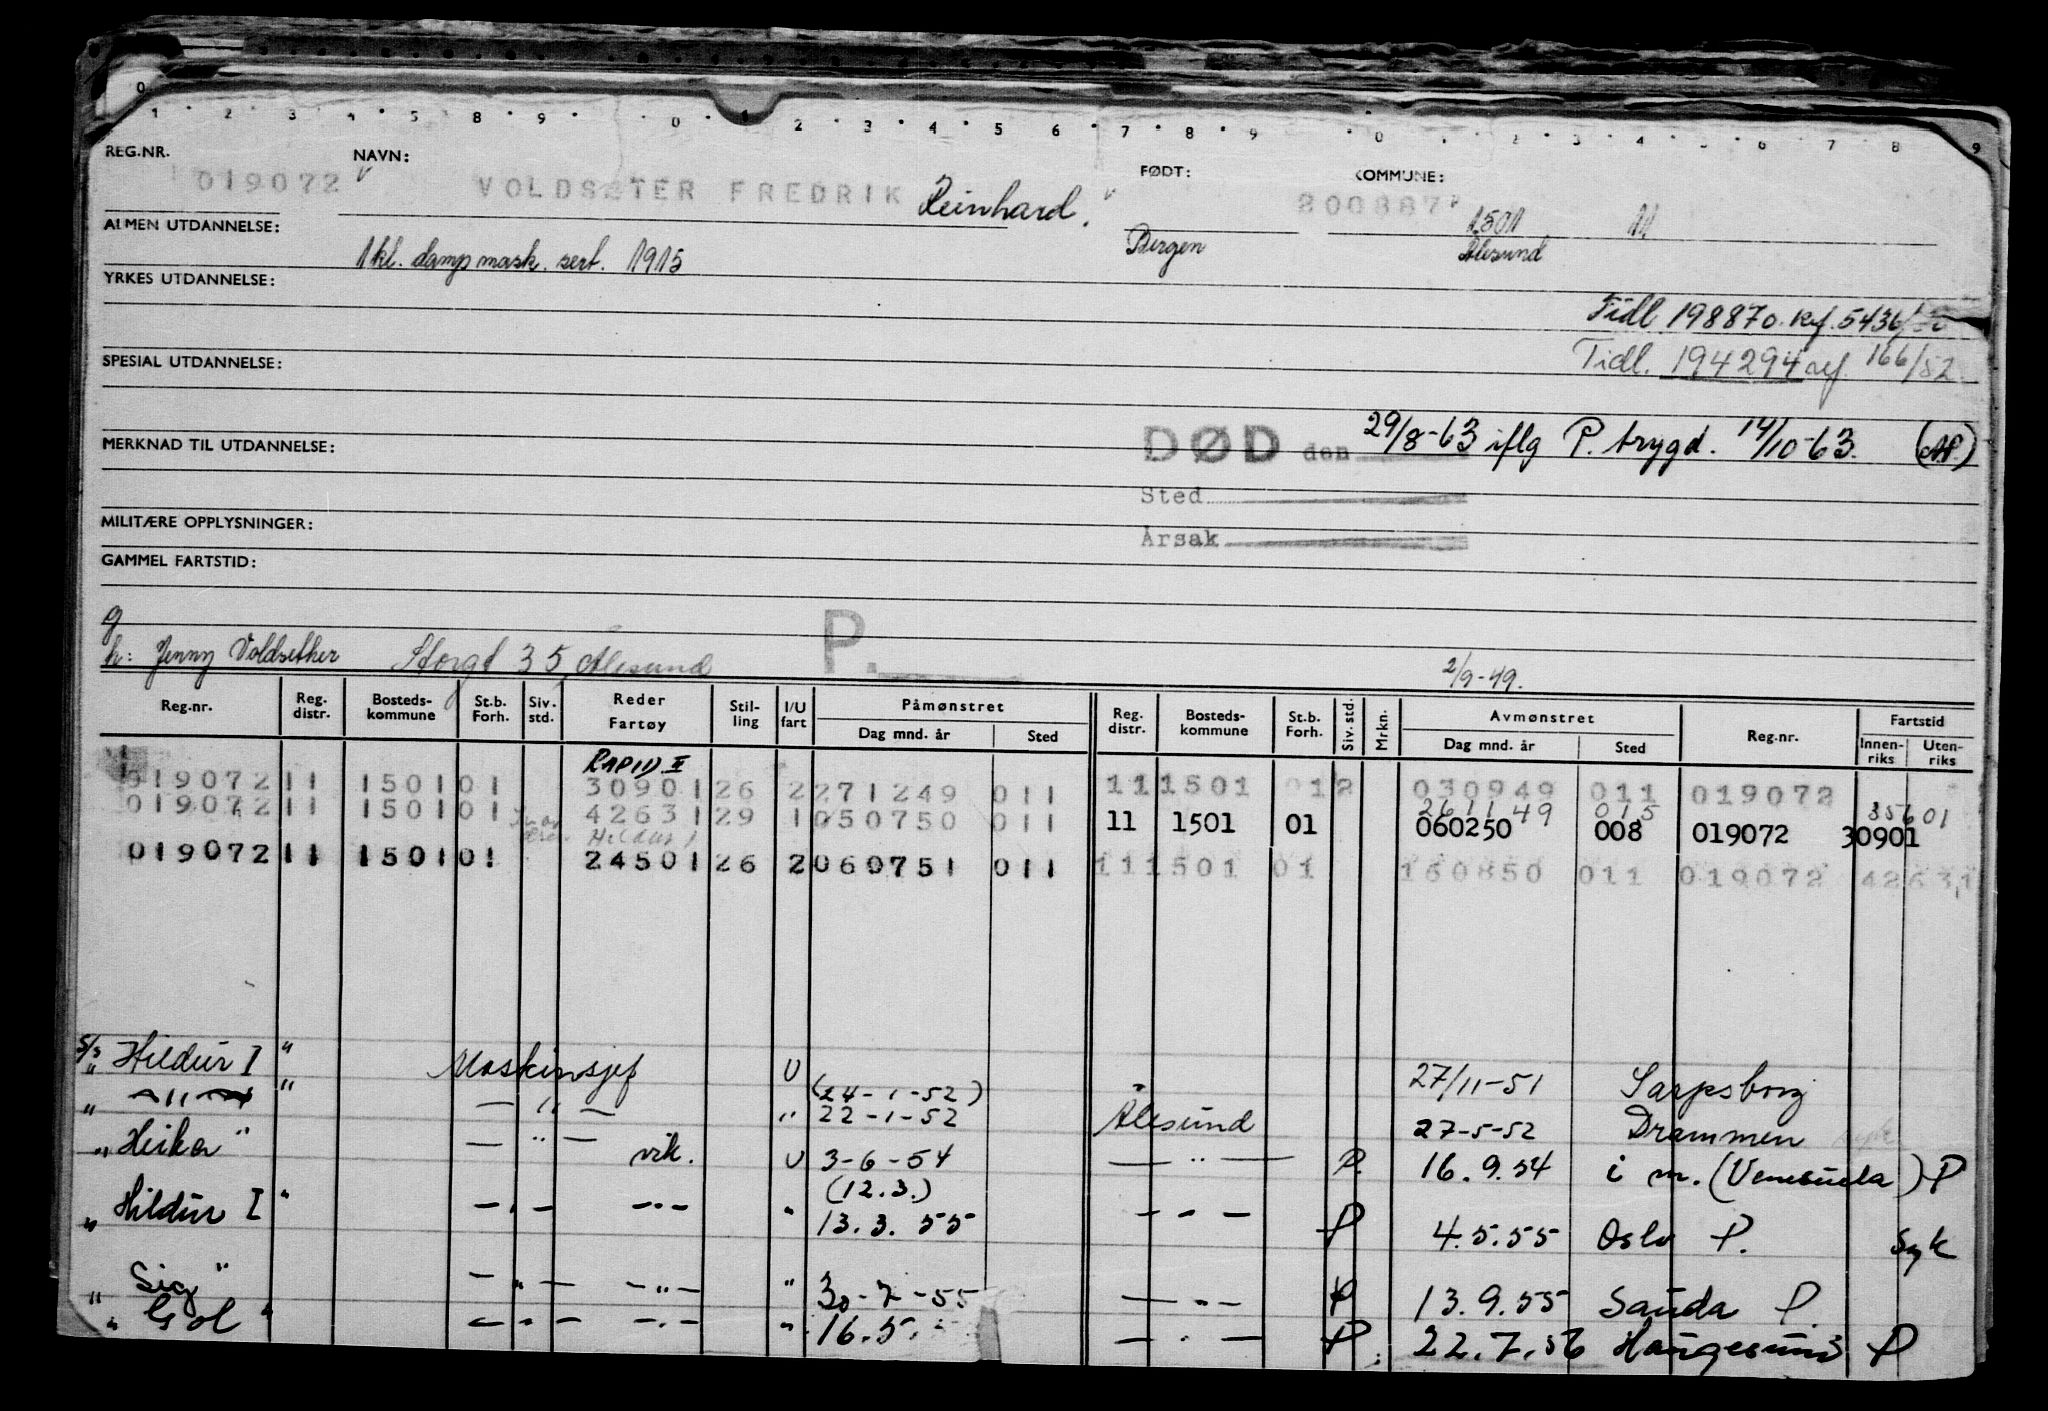 REG.NR. NAVN: FØDT: KOMMUNE:
019072 VOLDSETER FREDRIK Reinhard. 200887 1501 11
ALMEN UTDANNELSE: 1 kl. damp mask. sert. 1915 Bergen Ålesund
YRKES UTDANNELSE:
Tidl 198870. ref. 5436/
SPESIAL UTDANNELSE: Tidl. 194294 ref. 166/52
MERKNAD TIL UTDANNELSE: DØD den 29/8-63 iflg P. trygd. 14/10-63.
Sted
MILITÆRE OPPLYSNINGER: Årsak
GAMMEL FARTSTID:
g
h: Jenny Voldsether Storgt 35, Ålesund P. 2/9-49.
Reg.nr. Reg. distr. Bosteds-kommune St.b. Forh. Siv. std. Reder Fartøy Stil-ling I/U fart Påmønstret Dag mnd. år Sted Reg. distr. Bosteds-kommune St.b. Forh. Siv. std. Mrkn. Avmønstret Dag mnd. år Sted Reg.nr. Fartstid Innen-riks Uten-riks
RAPID II
019072 11 1501 01 30901 26 2 271249 011 11 1501 01 2 030949 011 019072
261149 015 35601
019072 11 1501 01 42631 29 1 050750 011 11 1501 01 060250 008 019072 30901
Hildur I
019072 11 1501 01 24501 26 2 060751 011 11 1501 01 160850 011 019072 42631
S/S Hildur I " Maskinsjef U 27/11-51 Sarpsborg
(24-1-52)
" — " — " — " — " 22-1-52 Ålesund 27-5-52 Drammen
" Heika " — " — vik. U 3-6-54 — " — P. 16.9.54 i m. (Venesuela) P
(12.3.)
" Hildur I " — " — — " — " 13.3.55 — " — P 4.5.55 Oslo P. Syk
" Sig " — " — — " — " 30-7-55 — " — P 13.9.55 Sauda P.
" Gol " — " — — " — " 16.5. — " — P 22.7.56 Haugesund P